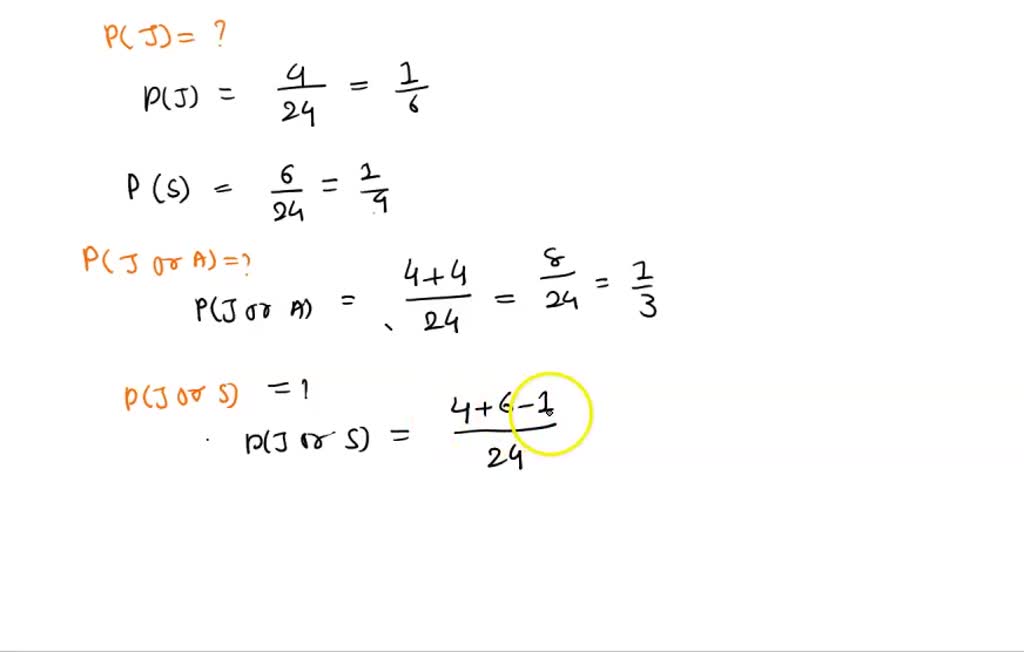 P(J) = ?
P(J) = 4/24 = 1/6
P(S) = 6/24 = 1/4
P(J or A) = ?
P(J or A) = 4+4/24 = 8/24 = 1/3
P(J or S) = 1
P(J or S) = 4+6-1/24